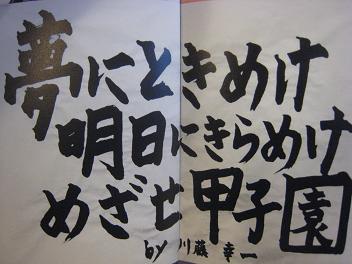 夢にときめけ
明日にきらめけ
めざせ甲子園
by川藤幸一